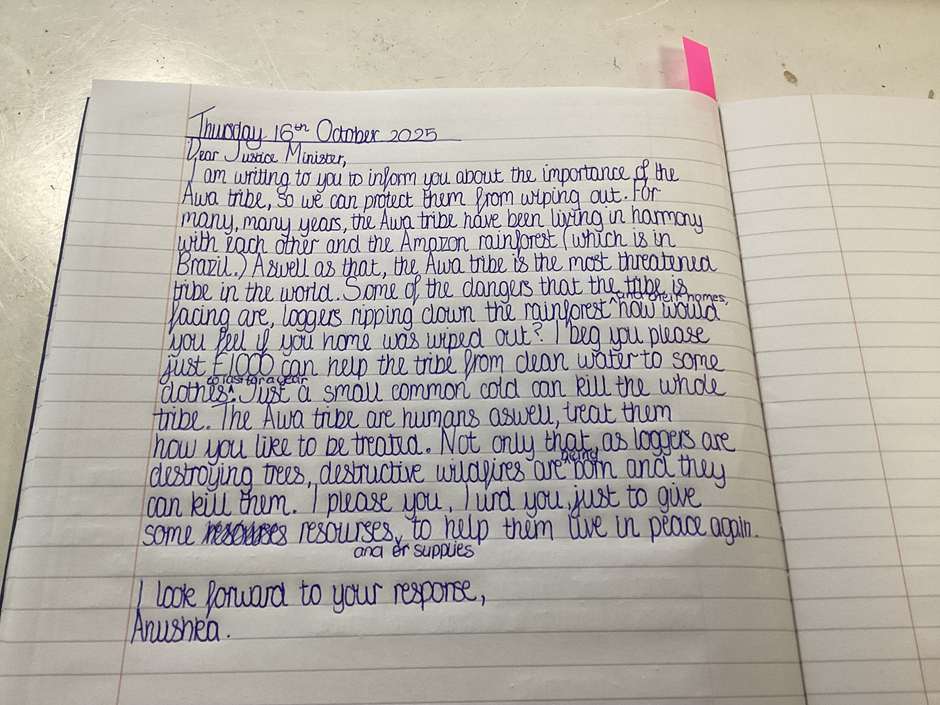 Thursday 16th October 2025
Dear Justice Minister,
I am writing to you to inform you about the importance of the
Awa tribe, so we can protect them from wiping out. For
many, many years, the Awa tribe have been living in harmony
with each other and the Amazon rainforest (which is in
Brazil.) Aswell as that, the Awa tribe is the most threatened
tribe in the world. Some of the dangers that the tribe is
and their homes,
facing are, loggers ripping down the rainforest ^ how would
you feel if you home was wiped out? I beg you please
just £1000 can help the tribe from clean water to some
to last for a year
clothes^. Just a small common cold can kill the whole
tribe. The Awa tribe are humans aswell, treat them
how you like to be treated. Not only that, as loggers are
being
destroying trees, destructive wildfires are ^ born and they
can kill them. I please you, I urd you, just to give
some resourses, to help them live in peace again.
and or supplies
I look forward to your response,
Anushka.